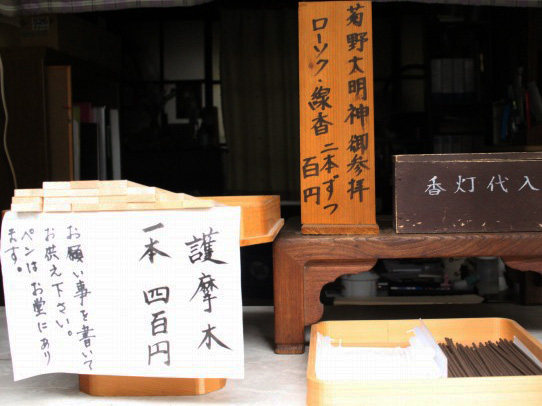 菊野大明神御参拝
ローソク・線香二本ずつ
百円
香灯代入
護摩木
一本 四百円
お願い事を書いて
お供え下さい。
ペンはお堂にあり
ます。